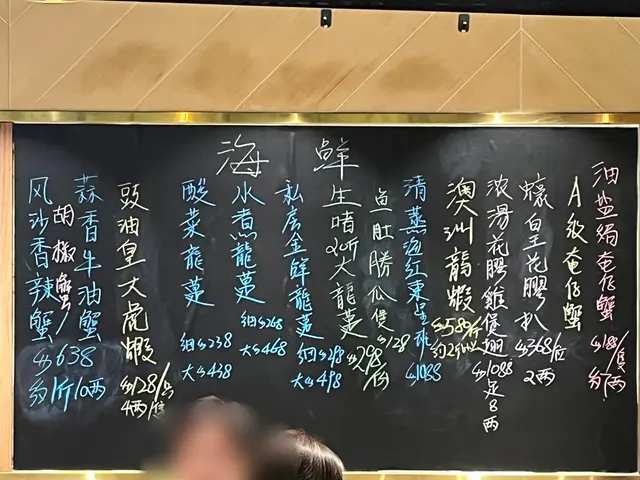 海鮮
油盐焗奄仔蟹
$188/隻
約7两
A級奄仔蟹
蠔皇花膠扒
$368/位
2两
浓湯花膠雞煲翅
$1088
足8两
澳洲龍蝦
$588/斤
清蒸海红東星斑
$1088
魚肚勝瓜煲
$128
生啫2斤大龍躉
$298/份
私房金鲜龍躉
細$298
大$498
水煮龍躉
細$268
大$468
酸菜龍躉
細$238
大$438
豉油皇大虎蝦
$128/隻
4两
蒜香牛油蟹
胡椒蟹
风沙香辣蟹
$638
約1斤10两